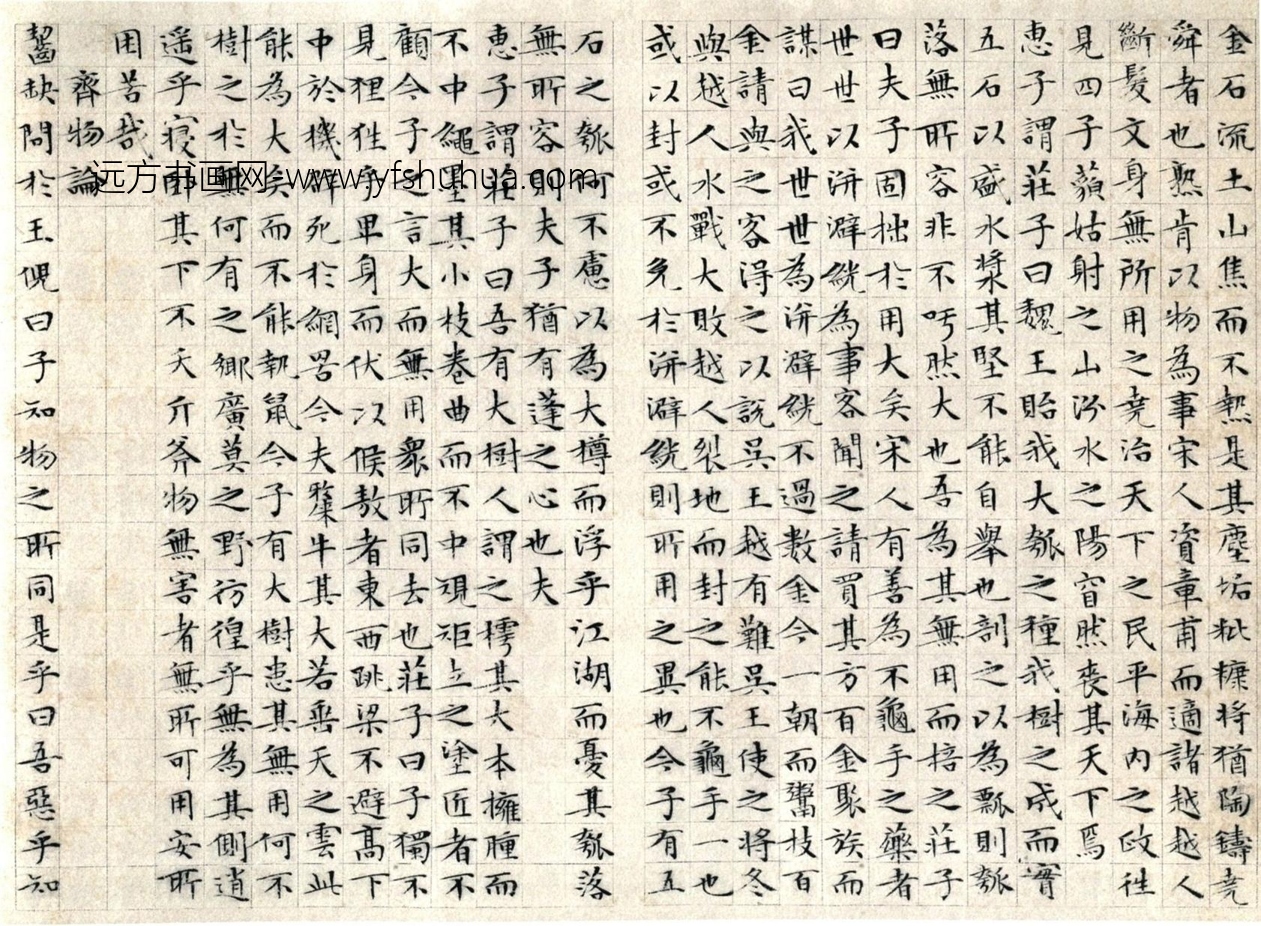 金石流土山焦而不熱是其塵垢粃糠將猶陶鑄堯
舜者也孰肯以物為事宋人資章甫而適諸越越人
斷髮文身無所用之堯治天下之民平海内之政往
見四子藐姑射之山汾水之陽窅然喪其天下焉
惠子謂莊子曰魏王貽我大瓠之種我樹之成而實
五石以盛水漿其堅不能自舉也剖之以為瓢則瓠
落無所容非不呺然大也吾為其無用而掊之莊子
曰夫子固拙於用大矣宋人有善為不龜手之藥者
世世以洴澼絖為事客聞之請買其方百金聚族而
謀曰我世世為洴澼絖不過數金今一朝而鬻技百
金請與之客得之以說吳王越有難吳王使之將冬
與越人水戰大敗越人裂地而封之能不龜手一也
或以封或不免於洴澼絖則所用之異也今子有五
石之瓠何不慮以為大樽而浮乎江湖而憂其瓠落
無所容則夫子猶有蓬之心也夫
惠子謂莊子曰吾有大樹人謂之樗其大本擁腫而
不中繩墨其小枝卷曲而不中規矩立之塗匠者不
顧今子之言大而無用衆所同去也莊子曰子獨不
見狸狌乎卑身而伏以候敖者東西跳梁不避高下
中於機辟死於網罟今夫斄牛其大若垂天之雲此
能為大矣而不能執鼠今子有大樹患其無用何不
樹之於無何有之鄉廣莫之野彷徨乎無為其側逍
遥乎寢卧其下不夭斤斧物無害者無所可用安所
困苦哉
齊物論
齧缺問於王倪曰子知物之所同是乎曰吾惡乎知
远方书画网 www.yfshuhua.com